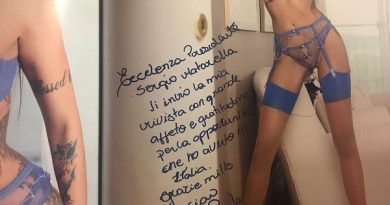 Blessed
Eccelenza Presidente
Sergio Matarella
Ti invio la mia
rivista con grande
affetto e gratitudine
per la opportunità
che ho avuto in
Italia.
grazie mille